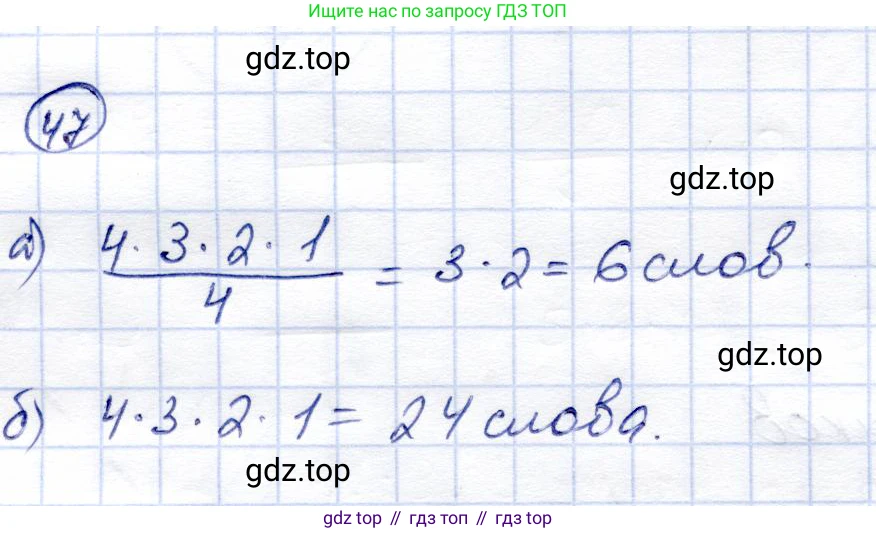 Ищите нас по запросу ГДЗ ТОП
gdz.top
47
gdz.top
а) 4·3·2·1/4 = 3·2 = 6 слов.
gdz.top
б) 4·3·2·1 = 24 слова.
gdz.top
gdz top // гдз топ // gdz top